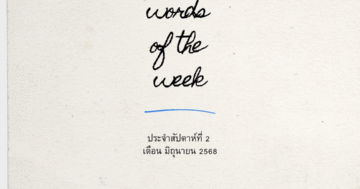 words
of the
week
ประจำสัปดาห์ที่ 2
เดือน มิถุนายน 2568